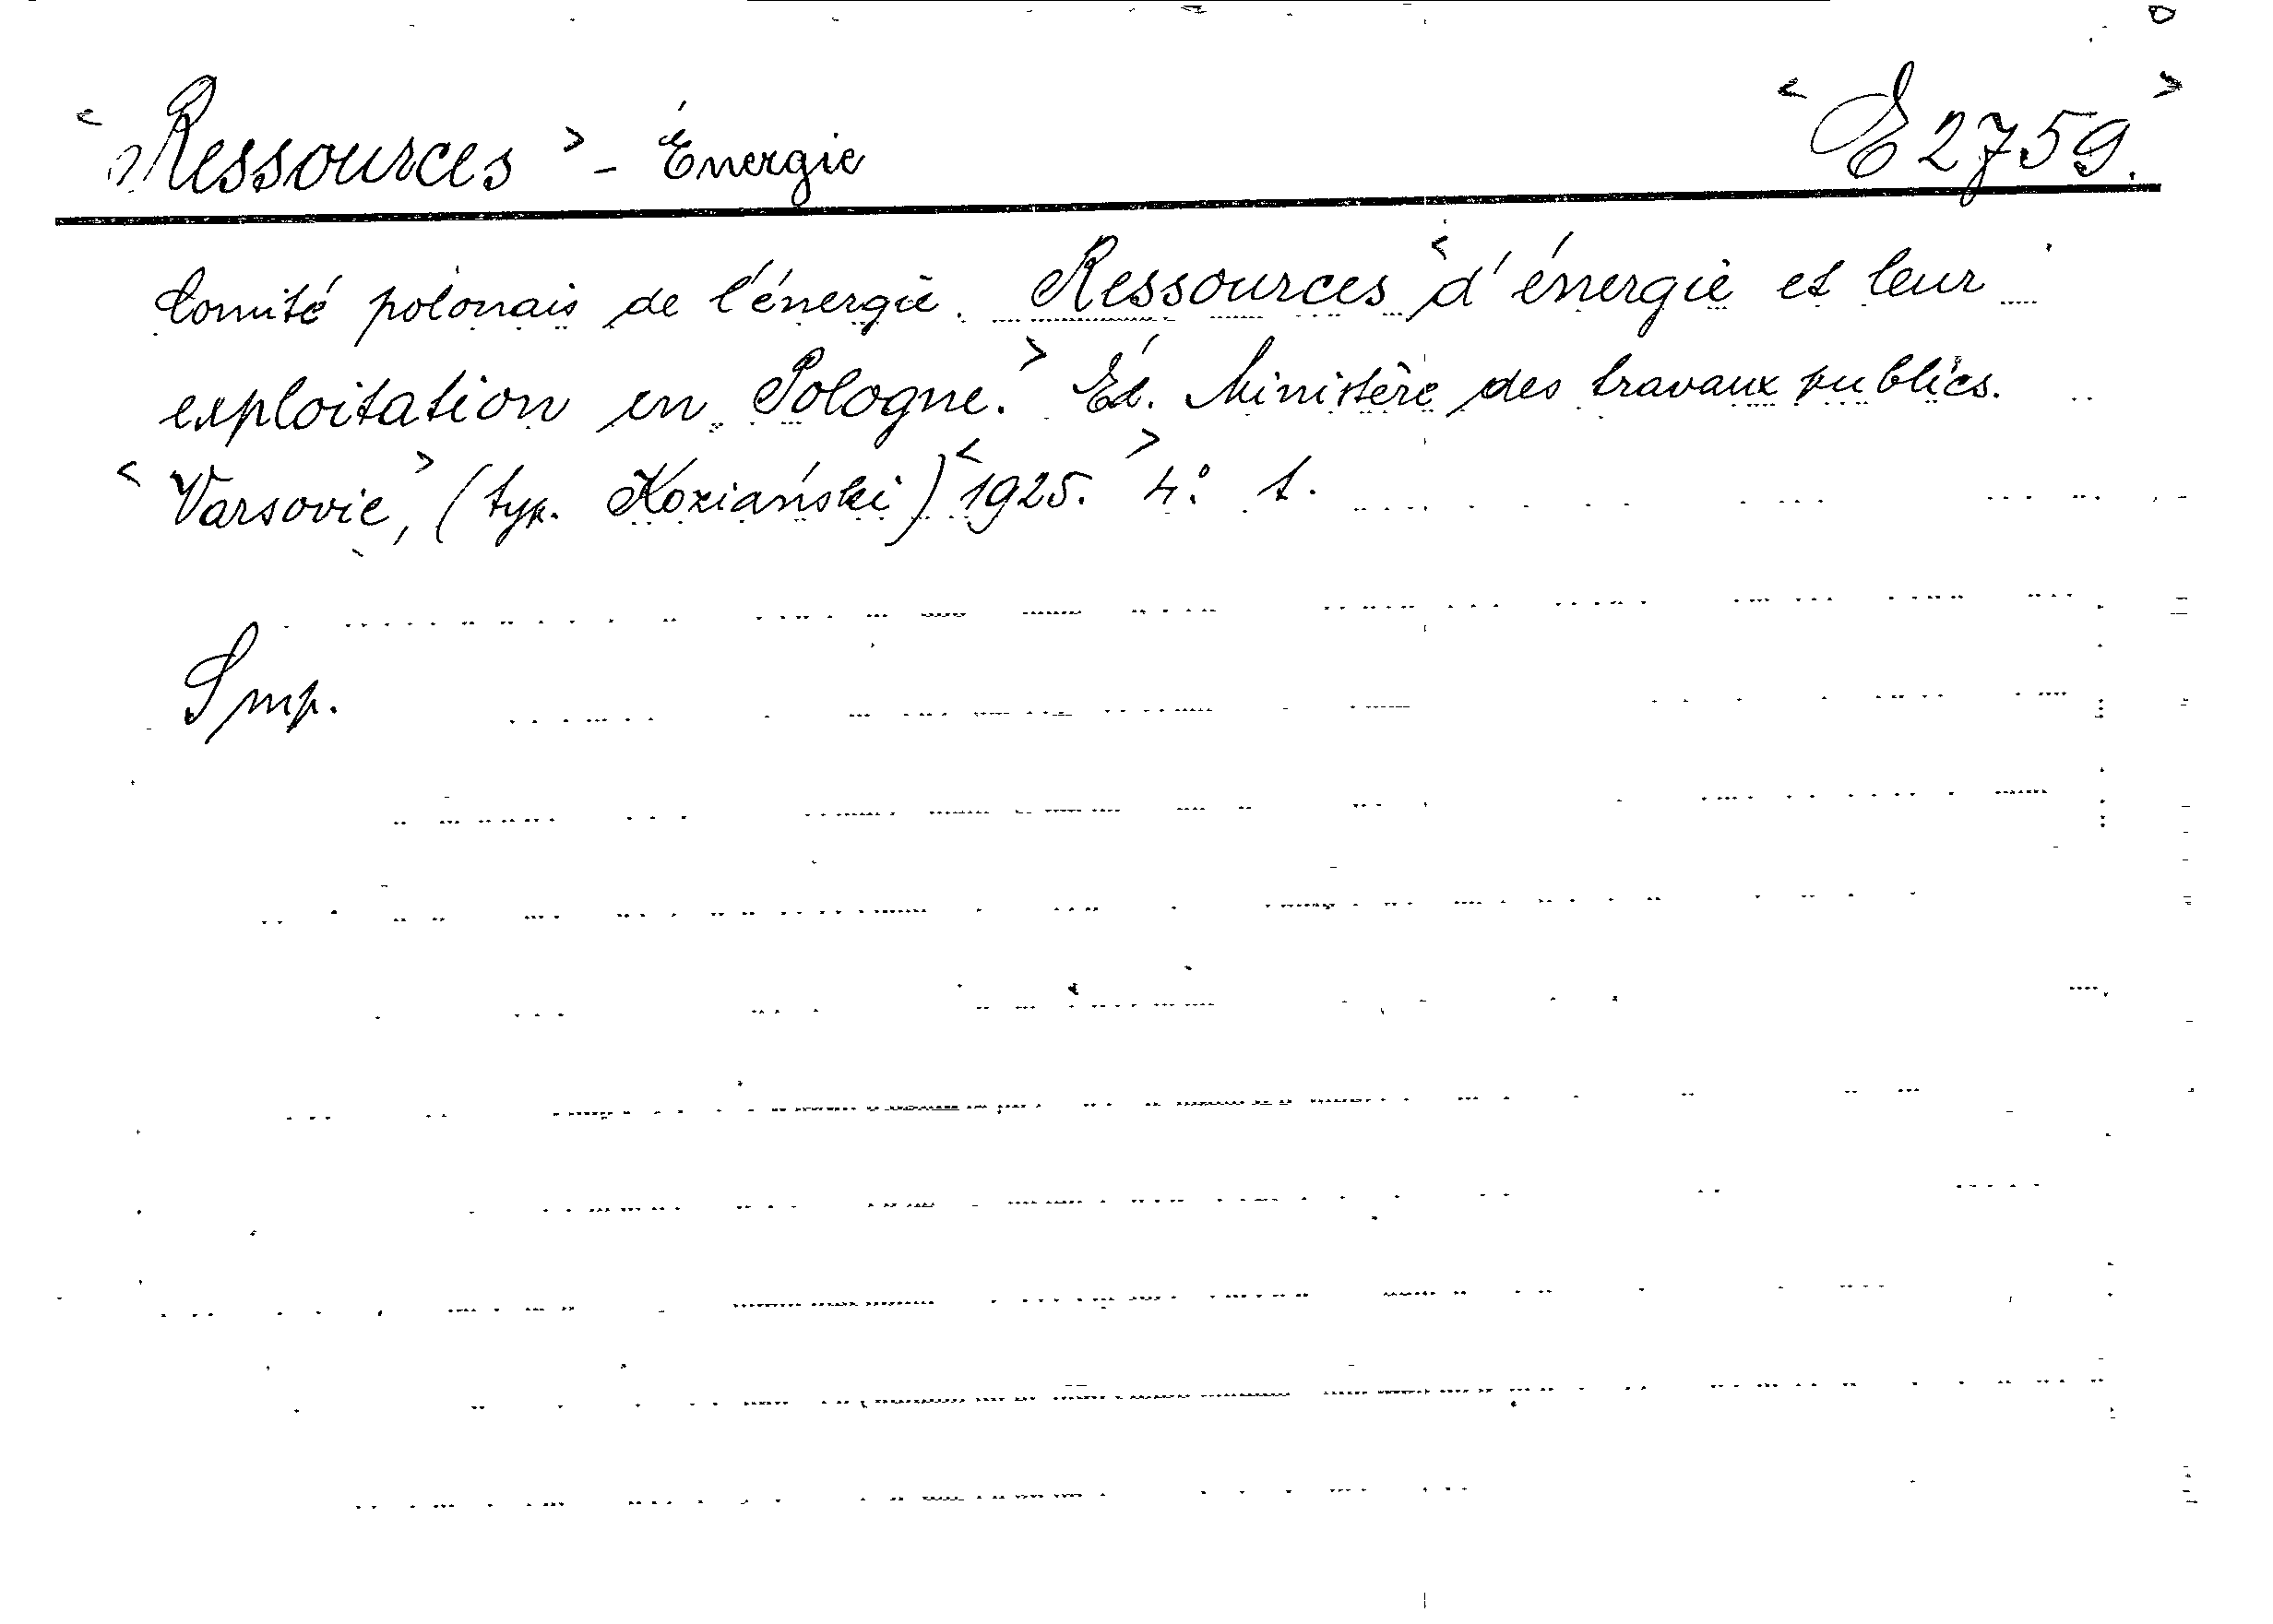 < Ressources > - Énergie < E 2759. >
Comité polonais de l'énergie. Ressources < d'énergie et leur
exploitation en Pologne. > Éd. Ministère des travaux publics.
< Varsovie, > (typ. Koziański) < 1925. > 4° 1.
Imp.